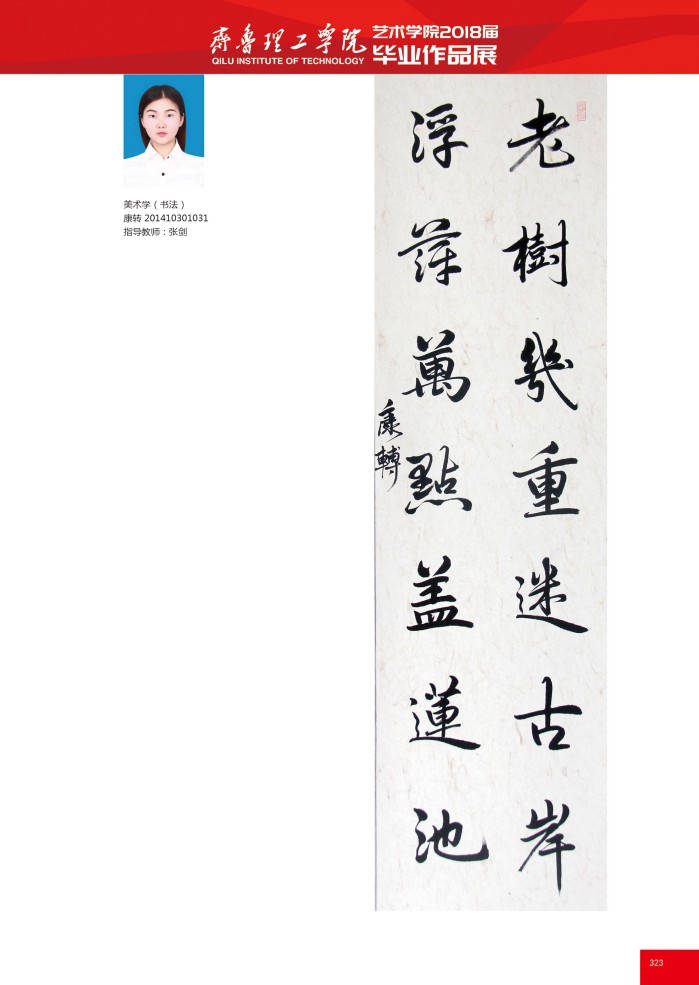 齊魯理工學院
QILU INSTITUTE OF TECHNOLOGY
艺术学院2018届
毕业作品展
美术学（书法）
康转 201410301031
指导教师：张剑
老樹幾重迷古岸
浮萍萬點盖蓮池
康轉
323